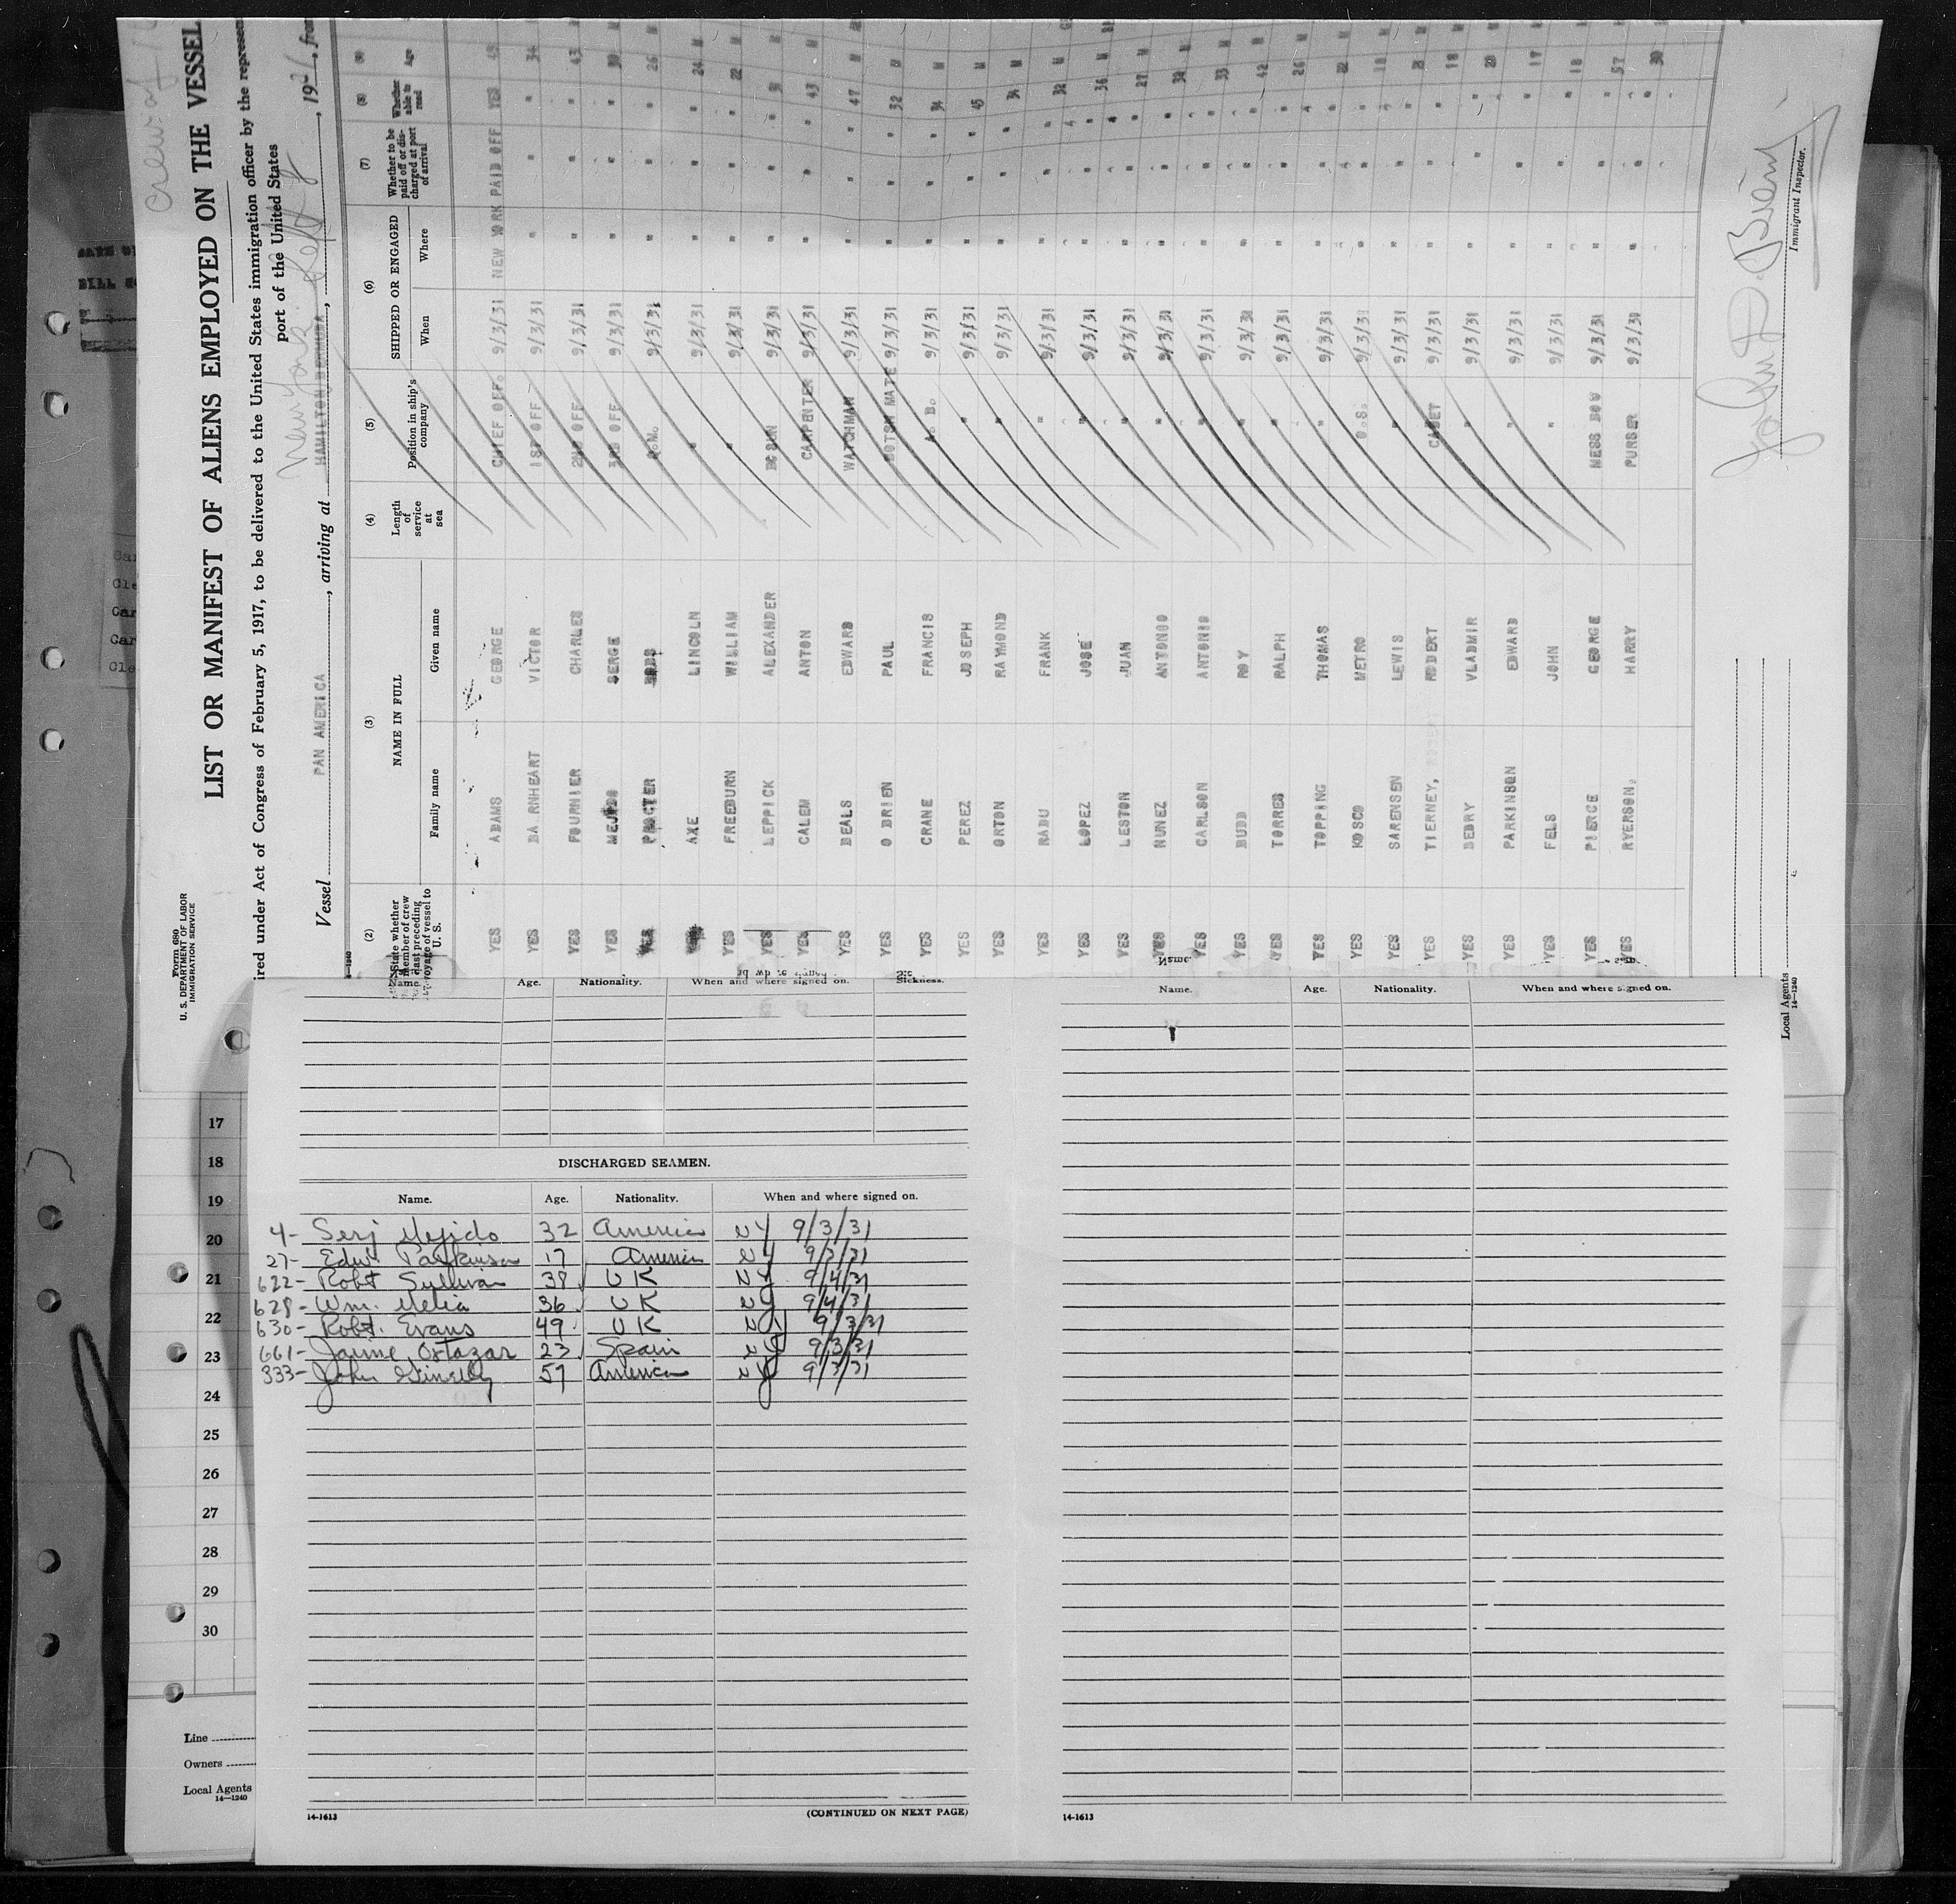 LIST OR MANIFEST OF ALIENS EMPLOYED ON THE VESSEL
ired under Act of Congress of February 5, 1917, to be delivered to the United States immigration officer by the represen
port of the United States
Form 680
U. S. DEPARTMENT OF LABOR
IMMIGRATION SERVICE
New York
Vessel PAN AMERICA, arriving at HAMILTON BERMUDA, 193
(2) (3) (4) (5) (6) (7) (8) (9)
State whether member of crew last preceding voyage of vessel to U. S.
NAME IN FULL
Family name Given name
Length of service at sea
Position in ship's company
SHIPPED OR ENGAGED
When Where
Whether to be paid off or discharged at port of arrival
Whether able to read
Age
YES ADAMS GEORGE CHIEF OFF. 9/3/31 NEW YORK PAID OFF YES
YES BARNHEART VICTOR 1ST OFF 9/3/31 " " "
YES FOURNIER CHARLES 2ND OFF 9/3/31 " " " 43
YES MEJIDO SERGE 3RD OFF 9/3/31 " " "
YES PROCTER Q.M. 9/3/31 " " " 26
AXE LINCOLN " 9/3/31 " " " 24 M
YES FREEBURN WILLIAM " 9/3/31 " " " 22 M
YES LEPPICK ALEXANDER BOSUN 9/3/31 " " " M
YES CALEM ANTON CARPENTER 9/3/31 " " " 43 M
YES BEALS EDWARD WATCHMAN 9/3/31 " " " 47 M
YES O BRIEN PAUL BOTSN MATE 9/3/31 " " " 32 M
YES CRANE FRANCIS A. B. 9/3/31 " " " 34 M
YES PEREZ JOSEPH " 9/3/31 " " " 45 M
YES ORTON RAYMOND " 9/3/31 " " " 34 M
YES RADU FRANK " 9/3/31 " " " 32 M
YES LOPEZ JOSE " 9/3/31 " " " 36 M
YES LESTON JUAN " 9/3/31 " " " 27 M
YES NUNEZ ANTONIO " 9/3/31 " " " M
YES CARLSON ANTONIO " 9/3/31 " " " 33 M
YES BUDD ROY " 9/3/31 " " " 42 M
YES TORRES RALPH " 9/3/31 " " " 26 M
YES TOPPING THOMAS " 9/3/31 " " " 22 M
YES KOSCO METRO O.S. 9/3/31 " " " 18 M
YES SARENSEN LEWIS " 9/3/31 " " " M
YES TIERNEY, ROBERT CADET 9/3/31 " " " 18 M
YES BEDRY VLADMIR " 9/3/31 " " " 20
YES PARKINSON EDWARD " 9/3/31 " " " 17
YES FELS JOHN " 9/3/31 " " " 18
YES PIERCE GEORGE MESS BOY 9/3/31 " " " 57
YES RYERSON. HARRY PURSER 9/3/31 " " " 30
Immigrant Inspector.
Local Agents
14—1240
Name. Age. Nationality. When and where signed on. Sickness.
Name. Age. Nationality. When and where signed on.
DISCHARGED SEAMEN.
Name. Age. Nationality. When and where signed on.
4- Serj Mejido 32 America NY 9/3/31
27- Edw. Parkinson 17 America NY 9/3/31
622- Robt Sullivan 38 UK NY 9/4/31
628- Wm. Melia 36 UK NY 9/4/31
630- Robt. Evans 49 UK NY 9/3/31
661- Jaime Ostazar 23 Spain NY 9/3/31
333- John 57 America NY 9/3/31
17
18
19
20
21
22
23
24
25
26
27
28
29
30
Line
Owners
Local Agents
14—1240
14-1613 (CONTINUED ON NEXT PAGE)
14-1613